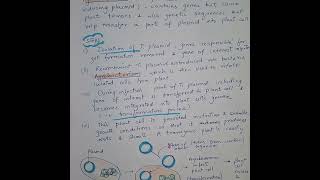 inducing plasmid), contains genes that cause
plant tumors & also genetic sequences that
help transfer a part of plasmid into plant cell
STEPS
i) Isolation of Ti plasmid, genes responsible for
gall formation removed & gene of interest
ii) Recombinant Ti plasmid introduced into
Agrobacterium which is then used to infect
isolated cells from plant.
iii) During infection part of Ti plasmid including
gene of interest is transferred to plant cell &
becomes integrated into plant cell's genome
transformation process
iv) This plant cell is provided nutrition & suitable
growth conditions so that it
roots & shoots. A transgenic plant is ready
plasmid
Agrobacterium
infect
plant cell